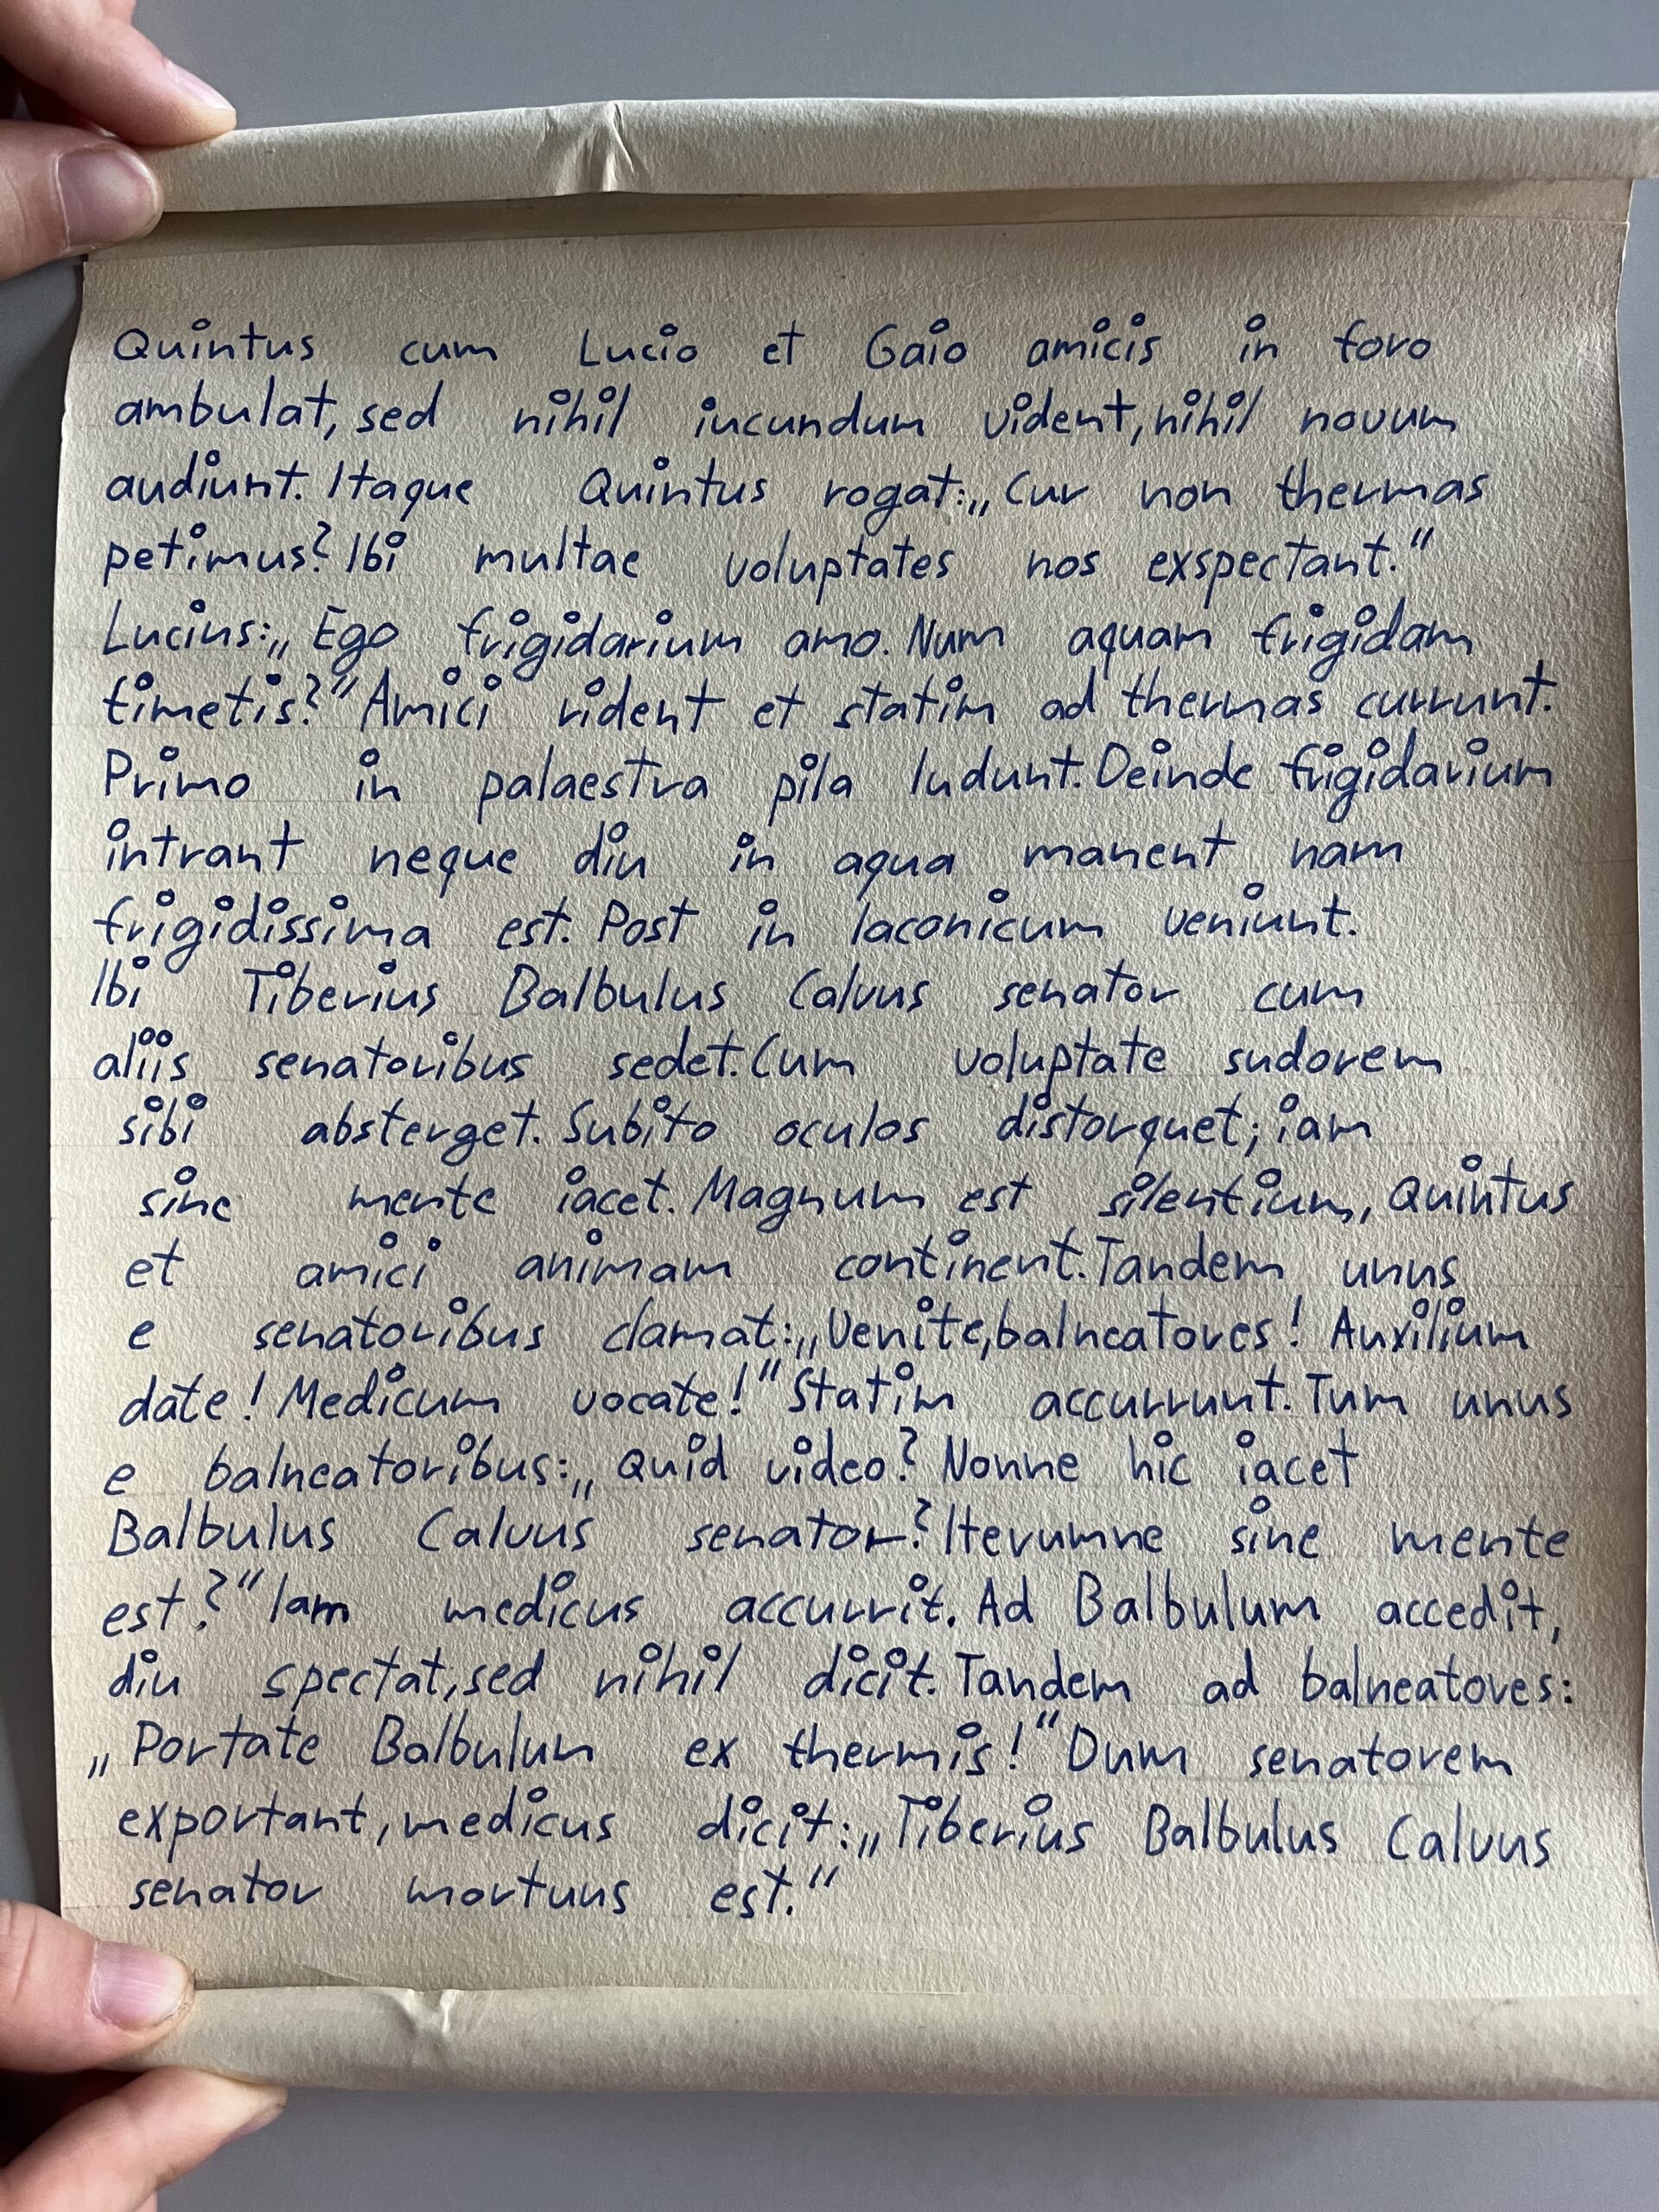 Quintus cum Lucio et Gaio amicis in foro
ambulat, sed nihil iucundum vident, nihil novum
audiunt. Itaque Quintus rogat: „Cur non thermas
petimus? Ibi multae voluptates nos exspectant.“
Lucius: „Ego frigidarium amo. Num aquam frigidam
timetis?“ Amici rident et statim ad thermas currunt.
Primo in palaestra pila ludunt. Deinde frigidarium
intrant neque diu in aqua manent nam
frigidissima est. Post in laconicum veniunt.
Ibi Tiberius Balbulus Calvus senator cum
aliis senatoribus sedet. Cum voluptate sudorem
sibi absterget. Subito oculos distorquet; iam
sine mente iacet. Magnum est silentium, Quintus
et amici animam continent. Tandem unus
e senatoribus clamat: „Venite, balneatores! Auxilium
date! Medicum vocate!“ Statim accurrunt. Tum unus
e balneatoribus: „Quid video? Nonne hic iacet
Balbulus Calvus senator? Iterumne sine mente
est?“ Iam medicus accurrit. Ad Balbulum accedit,
diu spectat, sed nihil dicit. Tandem ad balneatores:
„Portate Balbulum ex thermis!“ Dum senatorem
exportant, medicus dicit: „Tiberius Balbulus Calvus
senator mortuus est.“